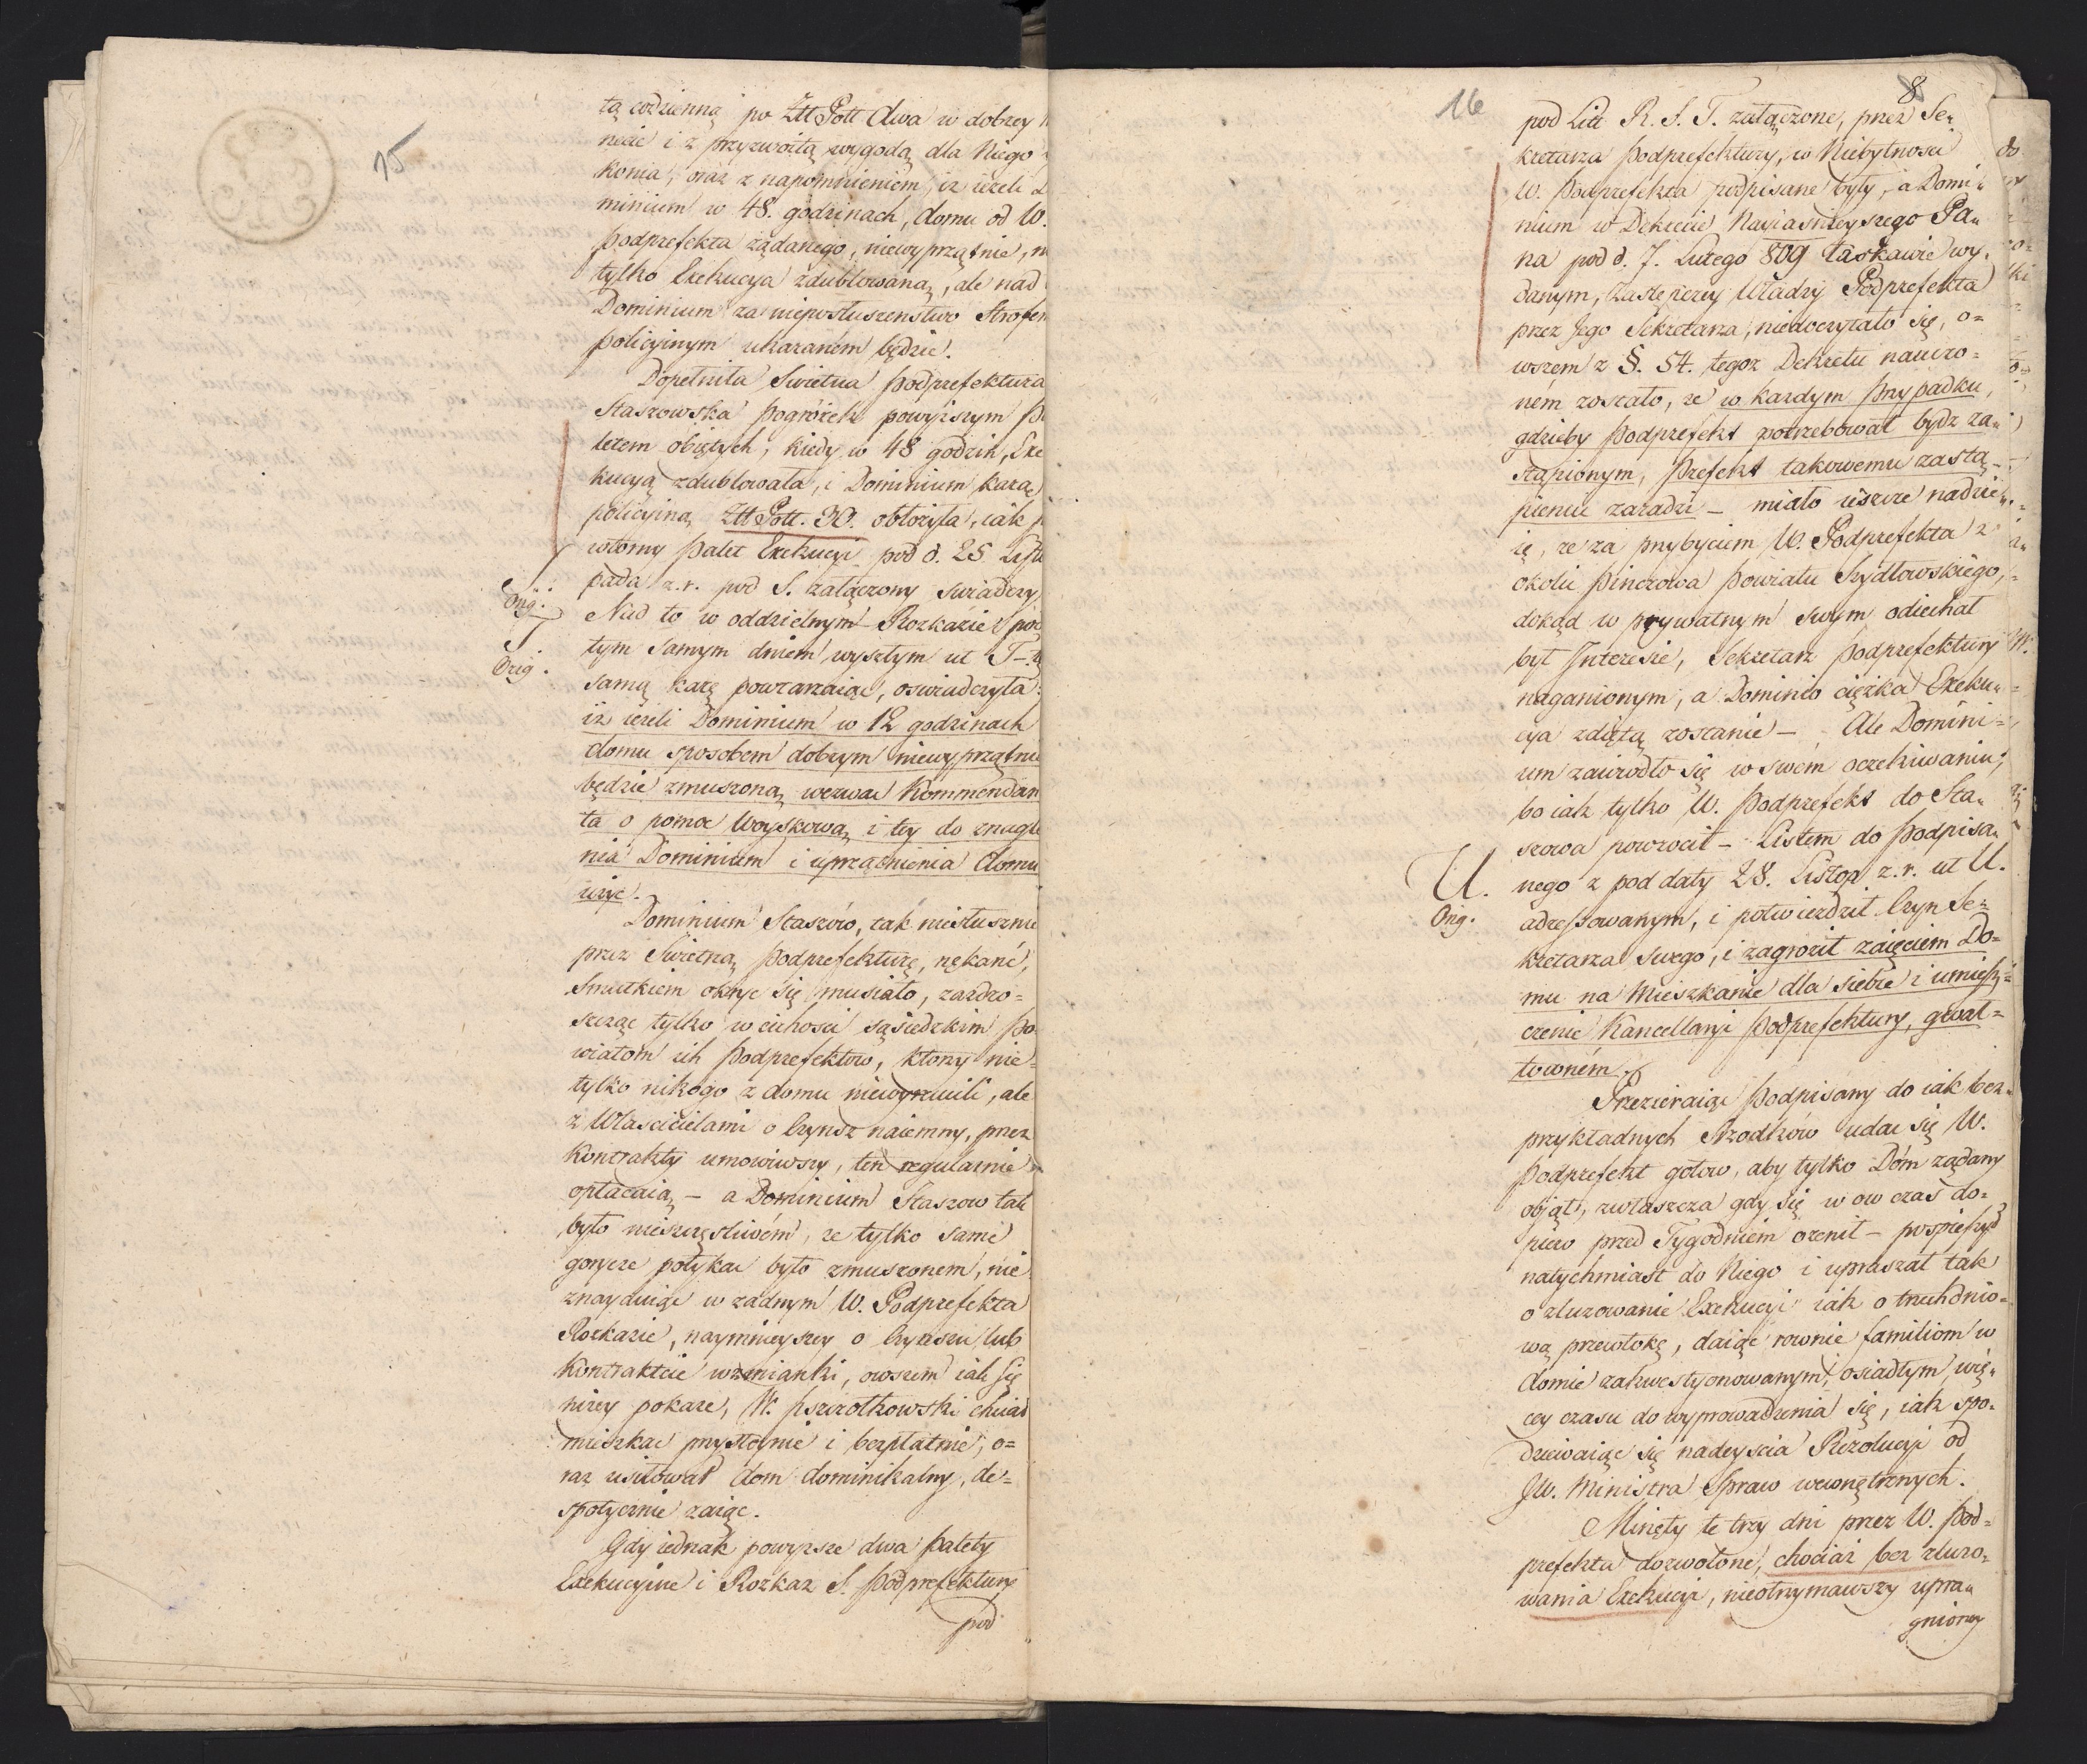 15
tą codzienną po Ztt Pott dwa w dobrey
necie i z przyzwoitą wygodą dla Niego
konia, oraz z napomnieniem, iz iezeli
minium w 48. godzinach, domu od W.
Podprefekta żądanego, niewyprzątnie,
tylko Exekucya zdublowaną, ale nad
Dominium za nieposłuszenstwo Strofem
policyinym ukaraném będzie.
Dopełniła Swietna Podprefektura
Staszowska pogróżek powyższym Pa
letem obiętych, kiedy w 48 godzin, Exe
kucyą zdublowała, i Dominium karą
policyiną Ztt Pott. 30. obłożyła, iak
wtorny Palet Exekucyi pod d. 25 Listo
pada z.r. pod S. załączony swiadczy,
Orig.
Nad to w oddzielnym Rozkazie pod
T
tym samym dniem wyszłym ut T –
Orig.
samą karę powtarzaiąc, oswiadczyła:
iż iezeli Dominium w 12 godzinach
domu sposobem dobrym niewyprzątnie
będzie zmuszoną wezwać Kommendan
ta o pomoc Woyskową i tey do znagle
nia Dominium i uprzątnienia domu
użyć.
Dominium Staszów, tak niesłusznie
przez Swietną Podprefekturę, nękané,
Smutkiem okryć się musiało, zazdro=
szcząc tylko w cichosci sąsiedzkim Po
wiatom ich Podprefektów, ktorzy nie
tylko nikogo z domu niewyrzucili, ale
z Własciciclami o Czynsz naiemny, przez
Kontrakty umowiwszy, ten regularnie
opłacaią – a Dominium Staszow tak
było nieszczęsliwém, ze tylko samé
gorycze połykać było zmuszoném, nie
znayduiąc w zadnym W. Podprefekta
Rozkazie, naymnieyszey o Czynszu lub
Kontrakcie wzmianki, owszem iak się
niżey pokaze, W. Pszczołkowski chciał
mieszkać przystoynie i bezpłatnie, o=
raz usiłował dom dominikalny, de=
spotycznie zaiąć.
Gdy iednak powyzsze dwa Palety
Exekucyine i Rozkaz S. Podprefektury
pod
16
8
pod Litt R. S. T. załączone, przez Se=
kretarza Podprefektury, w Niebytnosci
W. Podprefekta podpisane były, a Domi=
nium w Dekrecie Nayiasnieyszego Pa=
na pod d. 7. Lutego 809 łaskawie wy=
danym, zastępczey Władzy Podprefekta
przez Jego Sekretarza, niedoczytało się, o=
wszem z §. 54. tegoz Dekretu nauczo=
ném zostało, ze w kazdym przypadku,
gdzieby Podprefekt potrzebował bydz za=
stąpionym, Prefekt takowemu zastą=
pieniu zaradzi – miało ieszcze nadzie=
ię, ze za przybyciem W. Podprefekta z
okolic Pinczowa Powiatu Szydlowskiego,
dokąd w prywatnym swym odiechał
był Interesie, Sekretarz Podprefektury
naganionym, a Dominio ciężka Exeku=
cya zdiętą zostanie – Ale Domini=
um zawiodło się w swém oczekiwaniu;
bo iak tylko W. Podprefekt do Sta=
szowa powrocił – Listem do Podpisa=
U.
nego z pod daty 28. Listop z.r. ut U.
Orig.
adressowanym, i potwierdził Czyn Se=
kretarza Swego, i zagroził zaięciem Do=
mu na Mieszkanie dla siebie i umiesz=
czenie Kancellaryi Podprefektury, gwał=
towném.
Przezieraiąc Podpisany do iak bez=
przykładnych srzodków udać się W.
Podprefekt gotow, aby tylko Dóm żądany
obiął, zwłaszcza gdy się w ow czas do=
piero przed Tygodniem ozenił – pospieszył
natychmiast do Niego i upraszał tak
o zluzowanie Exekucyi iak o trzechdnio=
wą przewłokę, daiąc rownie familiom w
domie zakwestyonowanym, osiadłym, wię=
cey czasu do wyprowadzenia się, iak spo=
dziewaiąc się nadeyscia Rezolucyi od
JW. Ministra Spraw wewnętrznych.
Minęły te trzy dni przez W. Pod=
prefekta dozwolone, chociaż bez zluzo=
wania Exekucyi, nieotrzymawszy upra=
gnioney